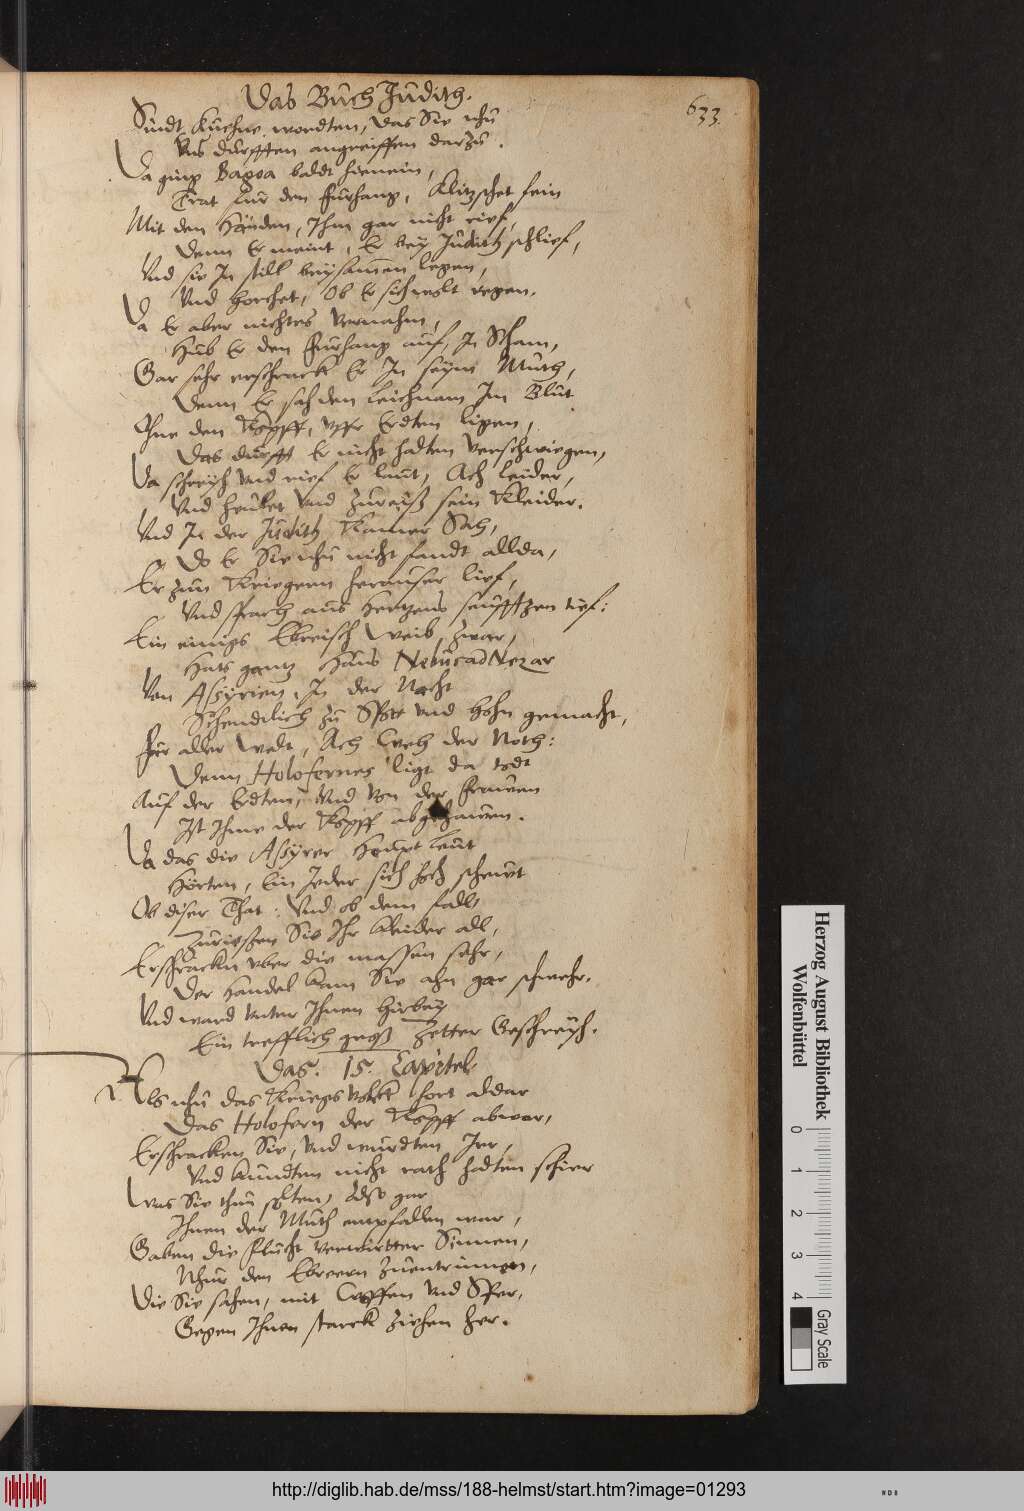 Das Buch Judith.
633.
Sindt kuehne wordten, das Sie nhu
Uns durfften angreiffen darzu.
Da ging Bagoa baldt hienein,
Trat fur den furhang, klitzschet fein
Mit den Händen, Ihm gar nicht rief,
Denn Er meint, Er bey Judith schlief,
Und sie In still beysamen legen,
Und horchet, Ob Er sich wolt regen.
Da Er aber nichtes vernahm,
Hub Er den furhang auf, In Scham,
Gar sehr erschrack Er In seym Muth,
Denn Er sah den leichnam Im Blut
Ohne den Kopff, uffr Erdten ligen,
Das durfft Er nicht hadten verschwiegen,
Da schreyh und rief Er laut, Ach leider,
Und heulet und zureiß sein Kleider.
Und In der Judith Kamer Sah,
Do Er Sie nhu nicht fandt allda,
Er zun Kriegern herauser lief,
Und sprach aus Hertzens seufftzen tief:
Ein einigs Ebreisch Weib, zwar,
Hats gantz Haus NebucadNezar
Von Assyrien, In der Nacht
Schendtlich zu Spott und Hohn gemacht,
für aller Welt, Ach Weh der Noth:
Denn Holofernes ligt da todt
Auf der Erdten, und von der frauen
Ist Ihme der Kopff abgehauen.
Da das die Assyrer Haupt leut
Hörten, Ein Jeder sich hoch scheut
Ob diser That: Und ob dem fall,
Zurießen Sie Ihr kleider all,
Erschracken uber die massen sehr,
Der Handel kam Sie ahn gar schwehr.
Und ward unter Ihnen hirbey
Ein trefflich groß Zetter Geschreyh.
Das. 15. Capitel.
Als nhu das Kriegs Volck hort aldar
Das Holofern der Kopff abwar,
Erschracken Sie, und wurdten Irr,
Und kundten nicht rath hadten schier
Was Sie thun solten, Also gar
Ihnen der Muth entpfallen war,
Gaben die flucht verwirtter Sinnen,
Nhur den Ebreern zuentrinnen,
Die Sie sahen, mit Waffen und Sper,
Gegen Ihnen starck ziehen her.
Herzog August Bibliothek
Wolfenbüttel
0 1 2 3 4
Gray Scale
http://diglib.hab.de/mss/188-helmst/start.htm?image=01293